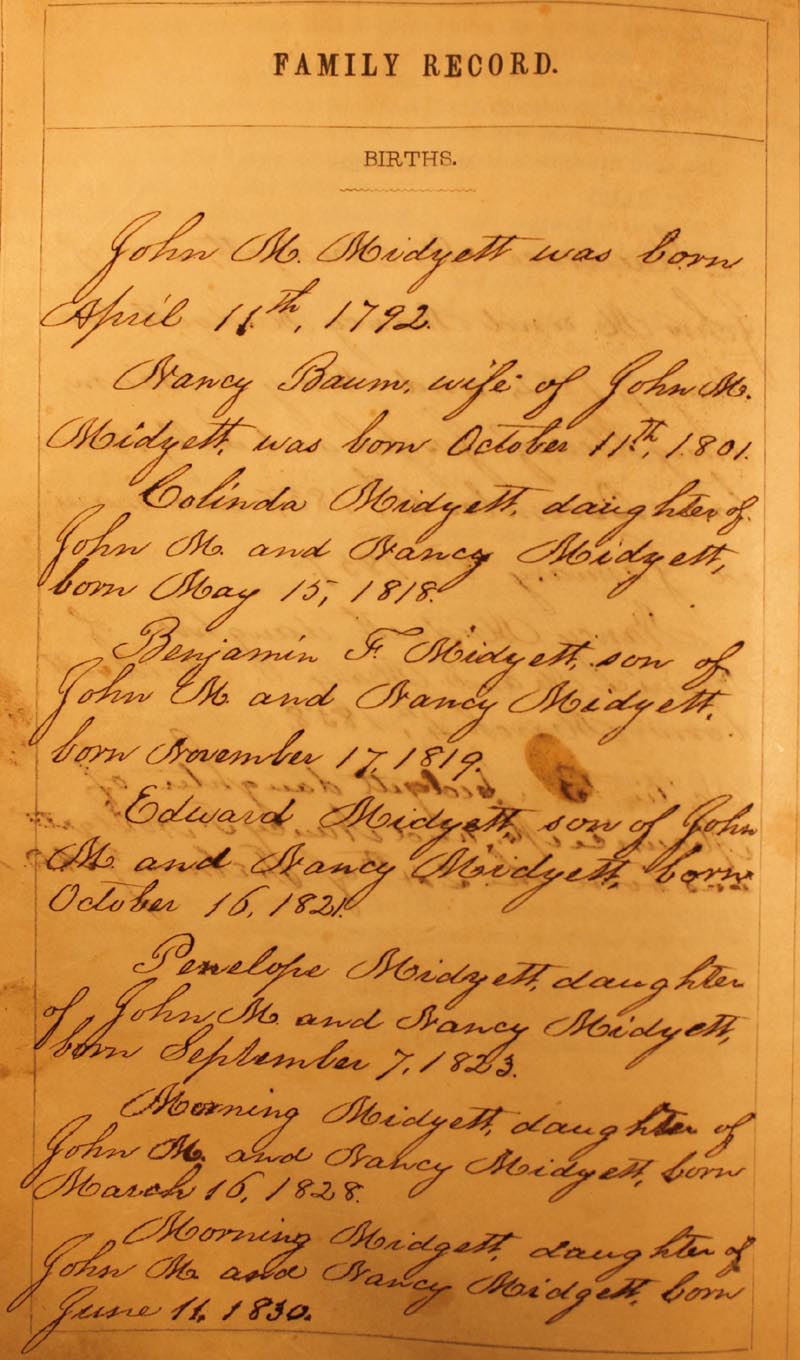 FAMILY RECORD.
BIRTHS.
John M. Midyett was born
April 11th, 1792.
Nancy Baum, wife of John M.
Midyett, was born October 11th, 1801.
Colinda Midyett, daughter of
John M. and Nancy Midyett,
born May 15, 1818.
Benjamin F. Midyett, son of
John M. and Nancy Midyett,
born November 17, 1819.
Edward Midyett, son of John
M. and Nancy Midyett, born
October 16, 1821.
Penelope Midyett, daughter
of John M. and Nancy Midyett,
born September 7, 1823.
Morning Midyett, daughter of
John M. and Nancy Midyett, born
March 16, 1828.
Morning Midgett, daughter of
John M. and Nancy Midgett, born
June 11, 1830.